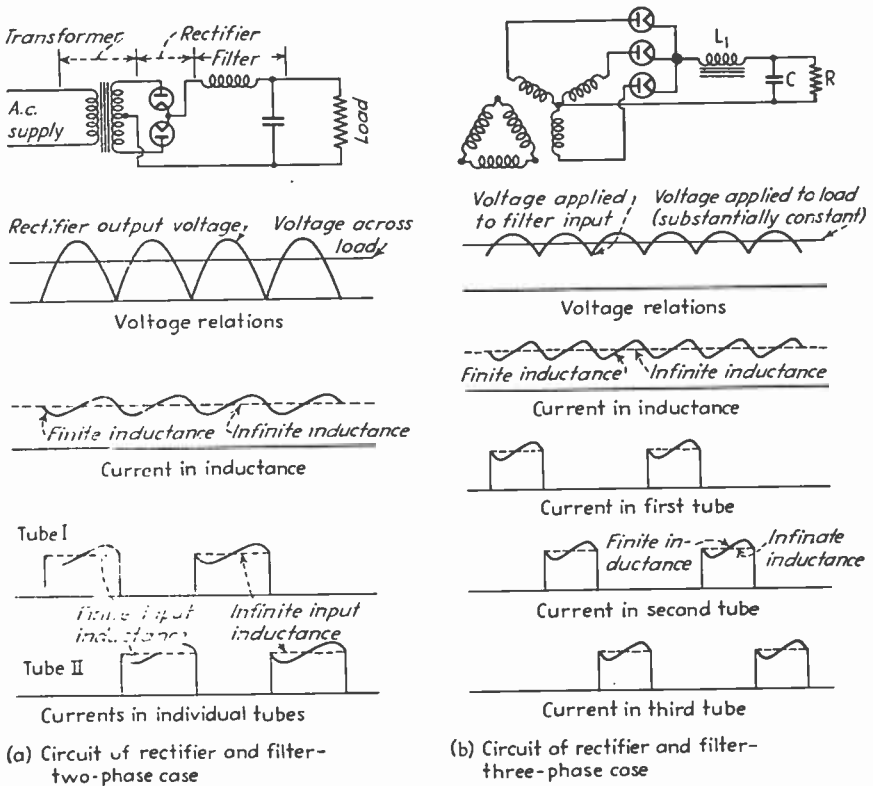 Transformer Rectifier
Filter
A.c.
supply
Load
Rectifier output voltage,
Voltage across
load,
Voltage relations
Finite inductance
Infinite inductance
Current in inductance
Tube I
Finite input
inductance
Infinite input
inductance
Tube II
Currents in individual tubes
(a) Circuit of rectifier and filter-
two-phase case
L1
C
R
Voltage applied
to filter input
Voltage applied to load
(substantially constant)
Voltage relations
Finite inductance
Infinite inductance
Current in inductance
Current in first tube
Finite in-
ductance
Infinate
inductance
Current in second tube
Current in third tube
(b) Circuit of rectifier and filter-
three-phase case